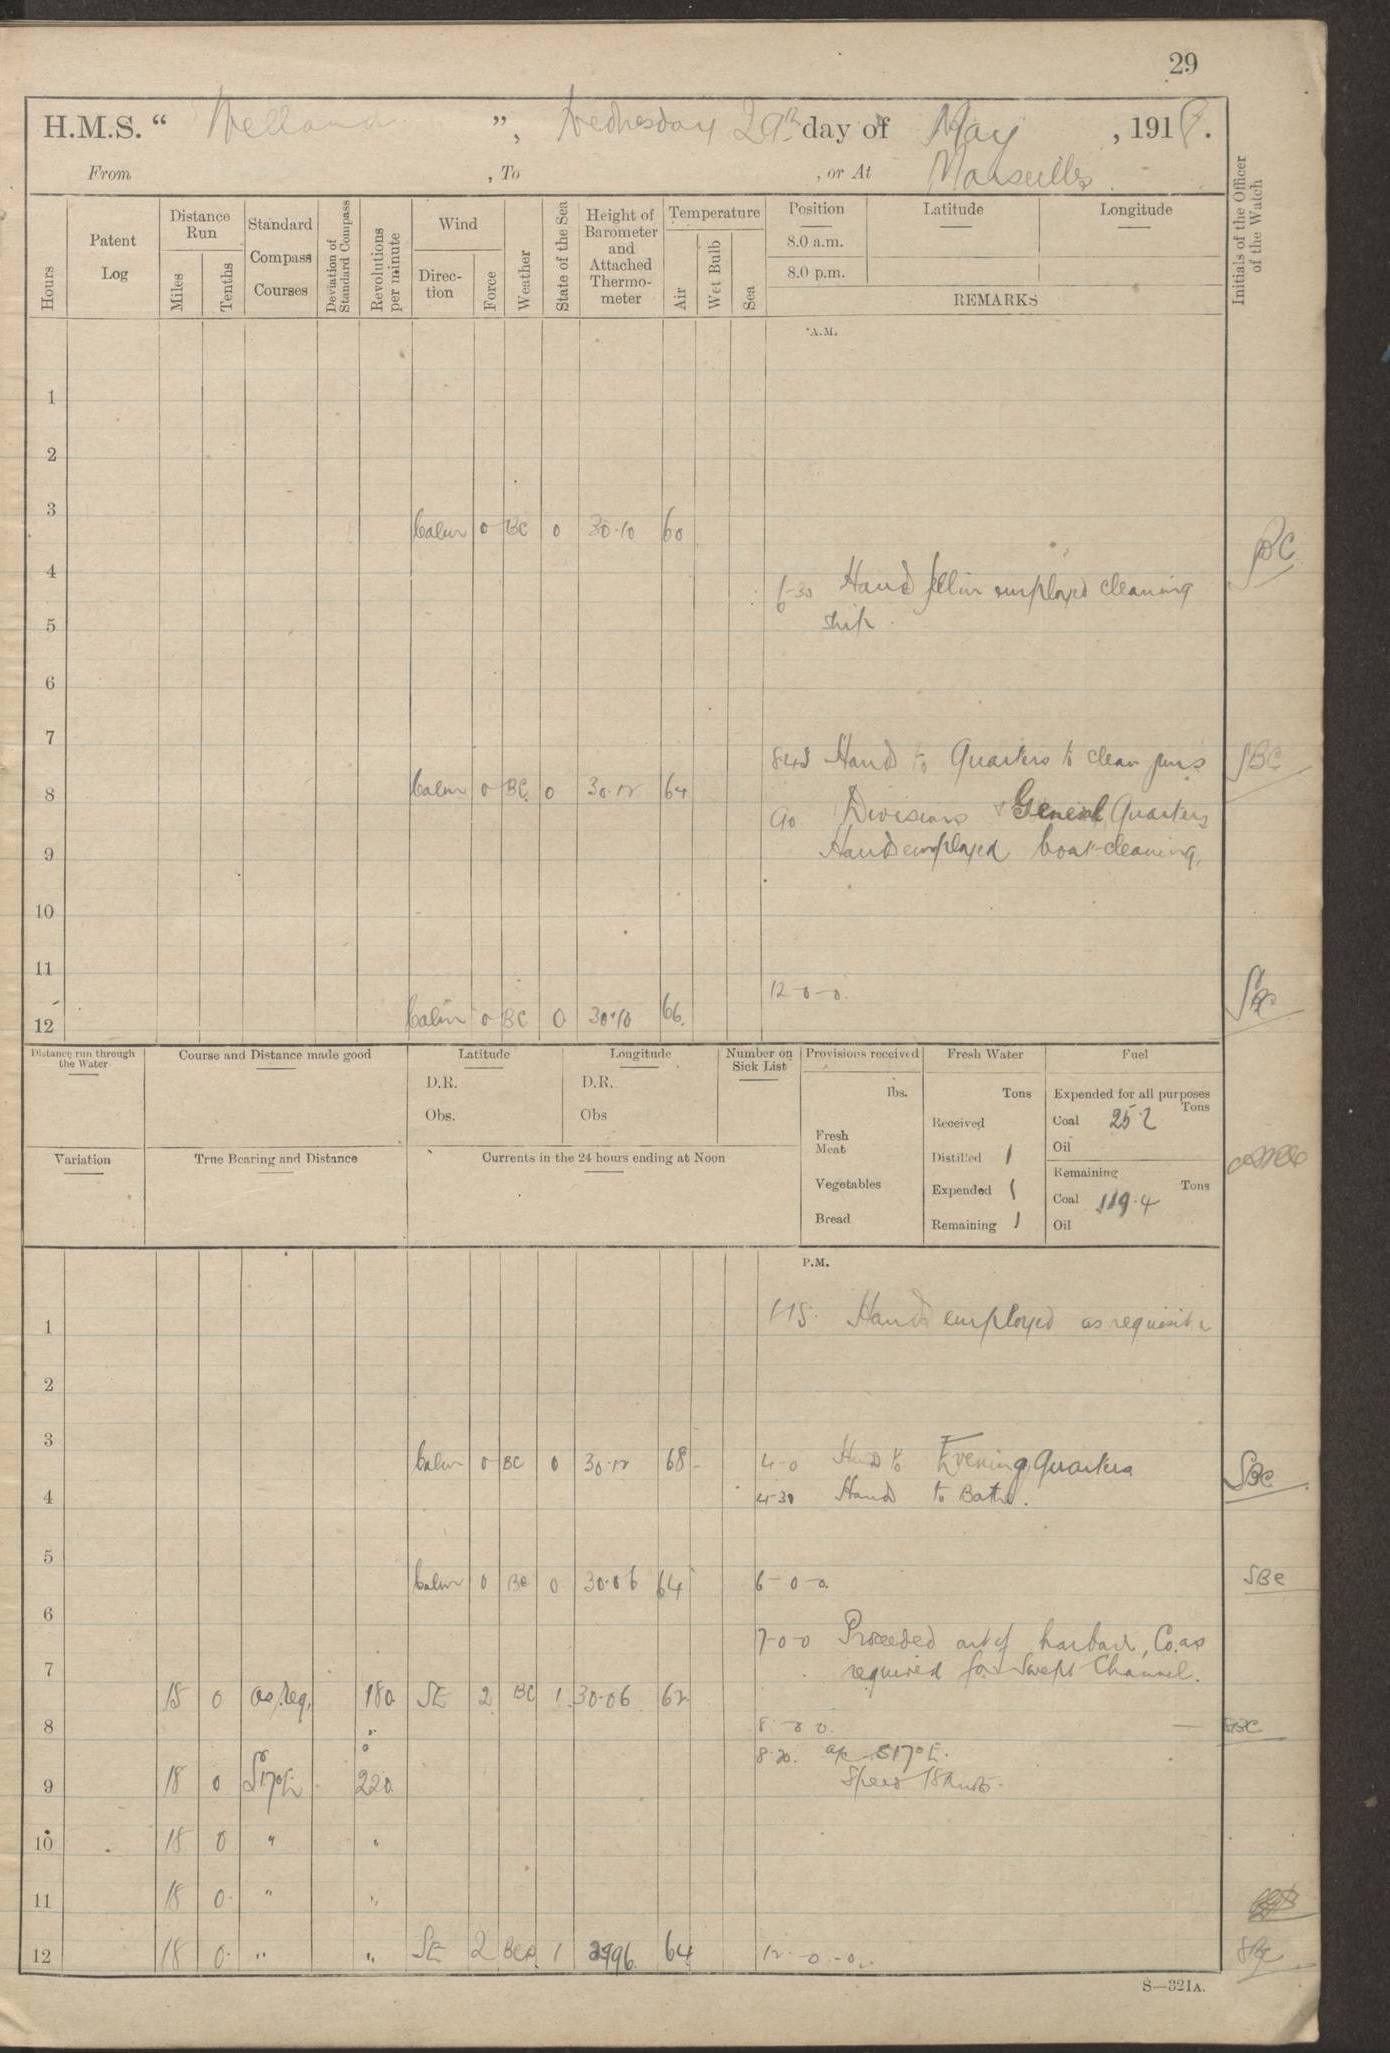 29
H.M.S. “ Welland ”, Wednesday 29th day of May , 1918.
From , To , or At Marseilles
Hours
Patent Log
Distance Run
Miles
Tenths
Standard Compass Courses
Deviation of Standard Compass
Revolutions per minute
Wind
Direc-tion
Force
Weather
State of the Sea
Height of Barometer and Attached Thermo-meter
Temperature
Air
Wet Bulb
Sea
Position
8.0 a.m.
8.0 p.m.
Latitude
Longitude
REMARKS
Initials of the Officer of the Watch
A.M.
1
2
3
Calm 0 BC 0 30.10 60
4
6-30 Hands fell in employed cleaning
ship.
5
6
7
8.45 Hands to Quarters to clean guns
8 Calm 0 BC 0 30.12 64 SBC
9.0 Divisions & General Quarters
9 Hands employed boat-cleaning.
10
11
12-0-0.
12 Calm 0 BC 0 30.10 66.
Distance run through the Water
Course and Distance made good
Latitude
D.R.
Obs.
Longitude
D.R.
Obs
Number on Sick List
Provisions received
lbs.
Fresh Meat
Vegetables
Bread
Fresh Water
Tons
Received
Distilled 1
Expended 1
Remaining 1
Fuel
Expended for all purposes
Tons
Coal 25.2
Oil
Remaining
Tons
Coal 119.4
Oil
Variation
True Bearing and Distance
Currents in the 24 hours ending at Noon
P.M.
1 1-15. Hands employed as requisite
2
3
Calm 0 BC 0 30.12 68 4-0 Hands to Evening Quarters SBC
4 4-30 Hands to Bathe.
5
Calm 0 BC 0 30.06 64 6-0-0. SBC
6
7-0-0 Proceeded out of harbour, Co. as
7 required for Swept Channel.
15 0 as req. 180 SE 2 BC 1 30.06 62
8 8-0-0. SBC
8.20. a/c S17°E.
9 18 0 S17°E 220 Speed 18 knots.
10 18 0 " "
11 18 0 " "
12 18 0 " " SE 2 BC 1 2996 64 12-0-0.
S—321A.